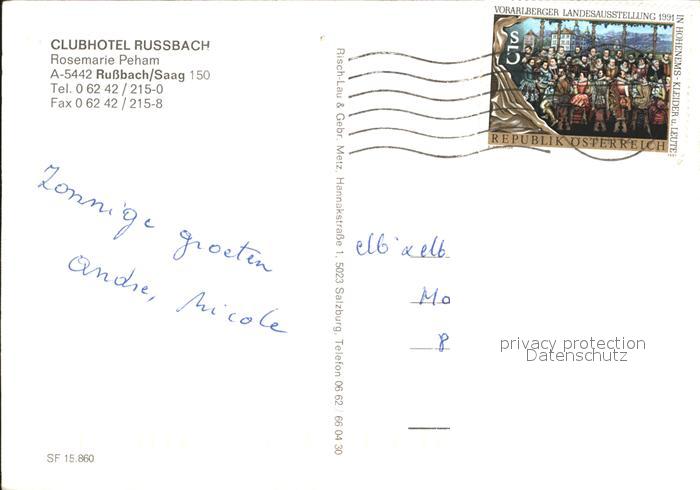 CLUBHOTEL RUSSBACH
Rosemarie Peham
A-5442 Rußbach/Saag 150
Tel. 0 62 42 / 215-0
Fax 0 62 42 / 215-8
Zonnige groeten
Andre, Nicole
SF 15.860
Risch-Lau & Gebr. Metz, Hannakstraße 1, 5023 Salzburg, Telefon 06 62 / 66 04 30
VORARLBERGER LANDESAUSSTELLUNG 1991
IN HOHENEMS - KLEIDER u. LEUTE
S 5
REPUBLIK ÖSTERREICH
Mo
8
privacy protection
Datenschutz